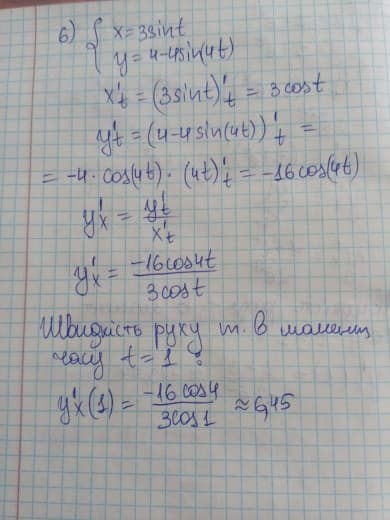 б) { x = 3sint
y = 4-4sin(4t)
x't = (3sint)'t = 3cost
y't = (4-4sin(4t))'t =
= -4·cos(4t)·(4t)'t = -16cos(4t)
y'x = y't / x't
y'x = -16cos4t / 3cost
Швидкість руху т. в момент
часу t = 1 :
y'x(1) = -16cos4 / 3cos1 ≈ 6,45